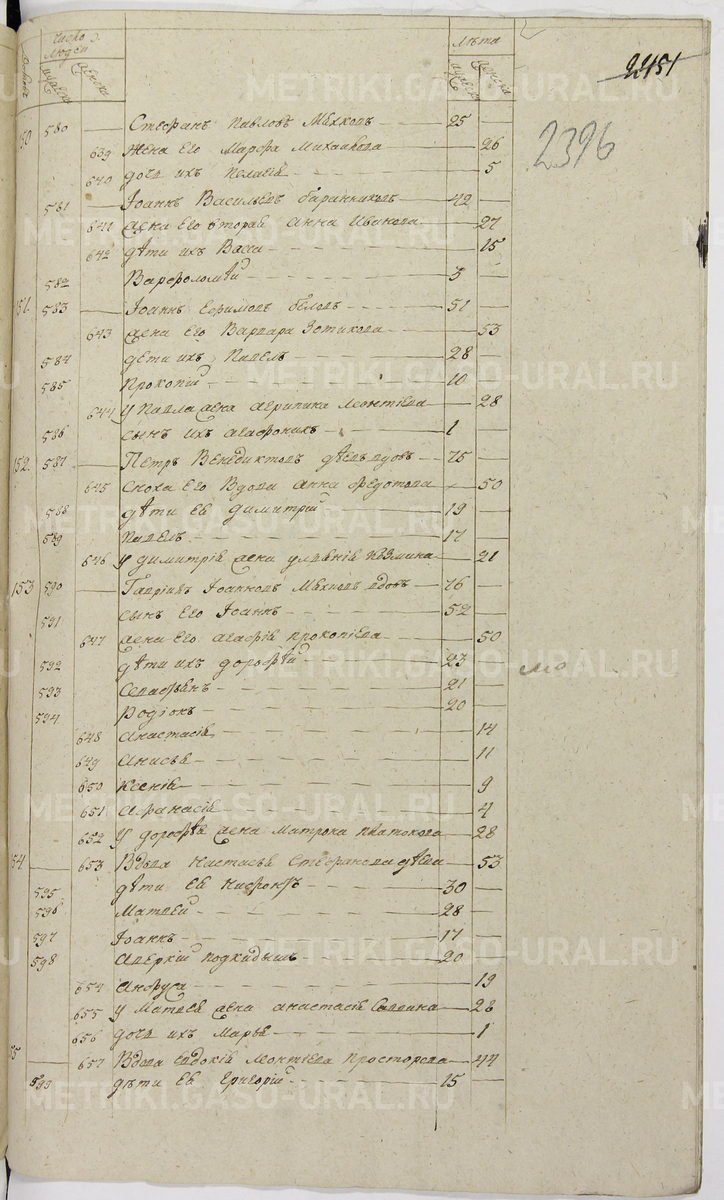 число людей лѣта
мужеска женска мужеска женска
2451
2396
150 580 Стефанъ Павловъ 25
639 Жена его Марфа Михайлова 26
640 дочь ихъ Пелагiя 5
581 Iоаннъ Васильевъ баранниковъ 42
641 жена его вторая Анна Иванова 27
642 дѣти ихъ Васса 15
582 Варфоломѣй 3
151. 583 Iоаннъ Ефимовъ бѣловъ 51
643 жена его Варвара Зотикова 53
584 дѣти ихъ Павелъ 28
585 Прокопiй 10
644 у Павла жена агрипина леонтiева 28
586 сынъ ихъ агафоникъ 1
152. 587 Петръ Венедиктовъ вдовъ 75
645 сноха его вдова анна федотова 50
588 дѣти ея димитрiй 19
589 Павелъ 17
646 у димитрiя жена улiянiя козмина 21
153 590 Гаврiилъ Iоанновъ вдовъ 76
591 сынъ его Iоаннъ 52
647 жена его агафiя прокопiева 50
592 дѣти ихъ дорофѣй 23
593 Севастьянъ 21
594 Родiонъ 20
648 анастасiя 14
649 анисья 11
650 Ксенiя 9
651 афанасiя 4
652 у дорофѣя жена матрона платонова 28
154 653 Вдова настасья Стефанова 53
595 дѣти ея никфоръ 30
596 Матвей 28
597 Iоаннъ 17
598 аверкiй подкидышъ 20
654 анфуса 19
655 у Матвея жена анастасiя Саввина 28
656 дочь ихъ марья 1
657 Вдова евдокiя леонтiева 44
599 дѣти ея григорiй 15
METRIKI.GASO-URAL.RU